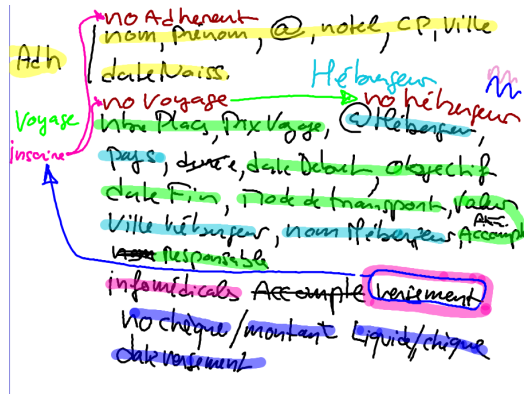 no Adherent
nom, Prenom, @, notel, CP, Ville
Adh
dateNaiss.
Hébergeur
no Voyage no hébergeur
Voyage nbre Places, Prix Voyage, @Héberger,
inscrire pays, durée, date Debut, Objectif
date Fin, Mode de transport, Valeur
Ville hébergeur, nom Hébergeur, Accompte
Responsable
infomédicals Accompte versement
no chèque/montant Liquide/chèque
date versement